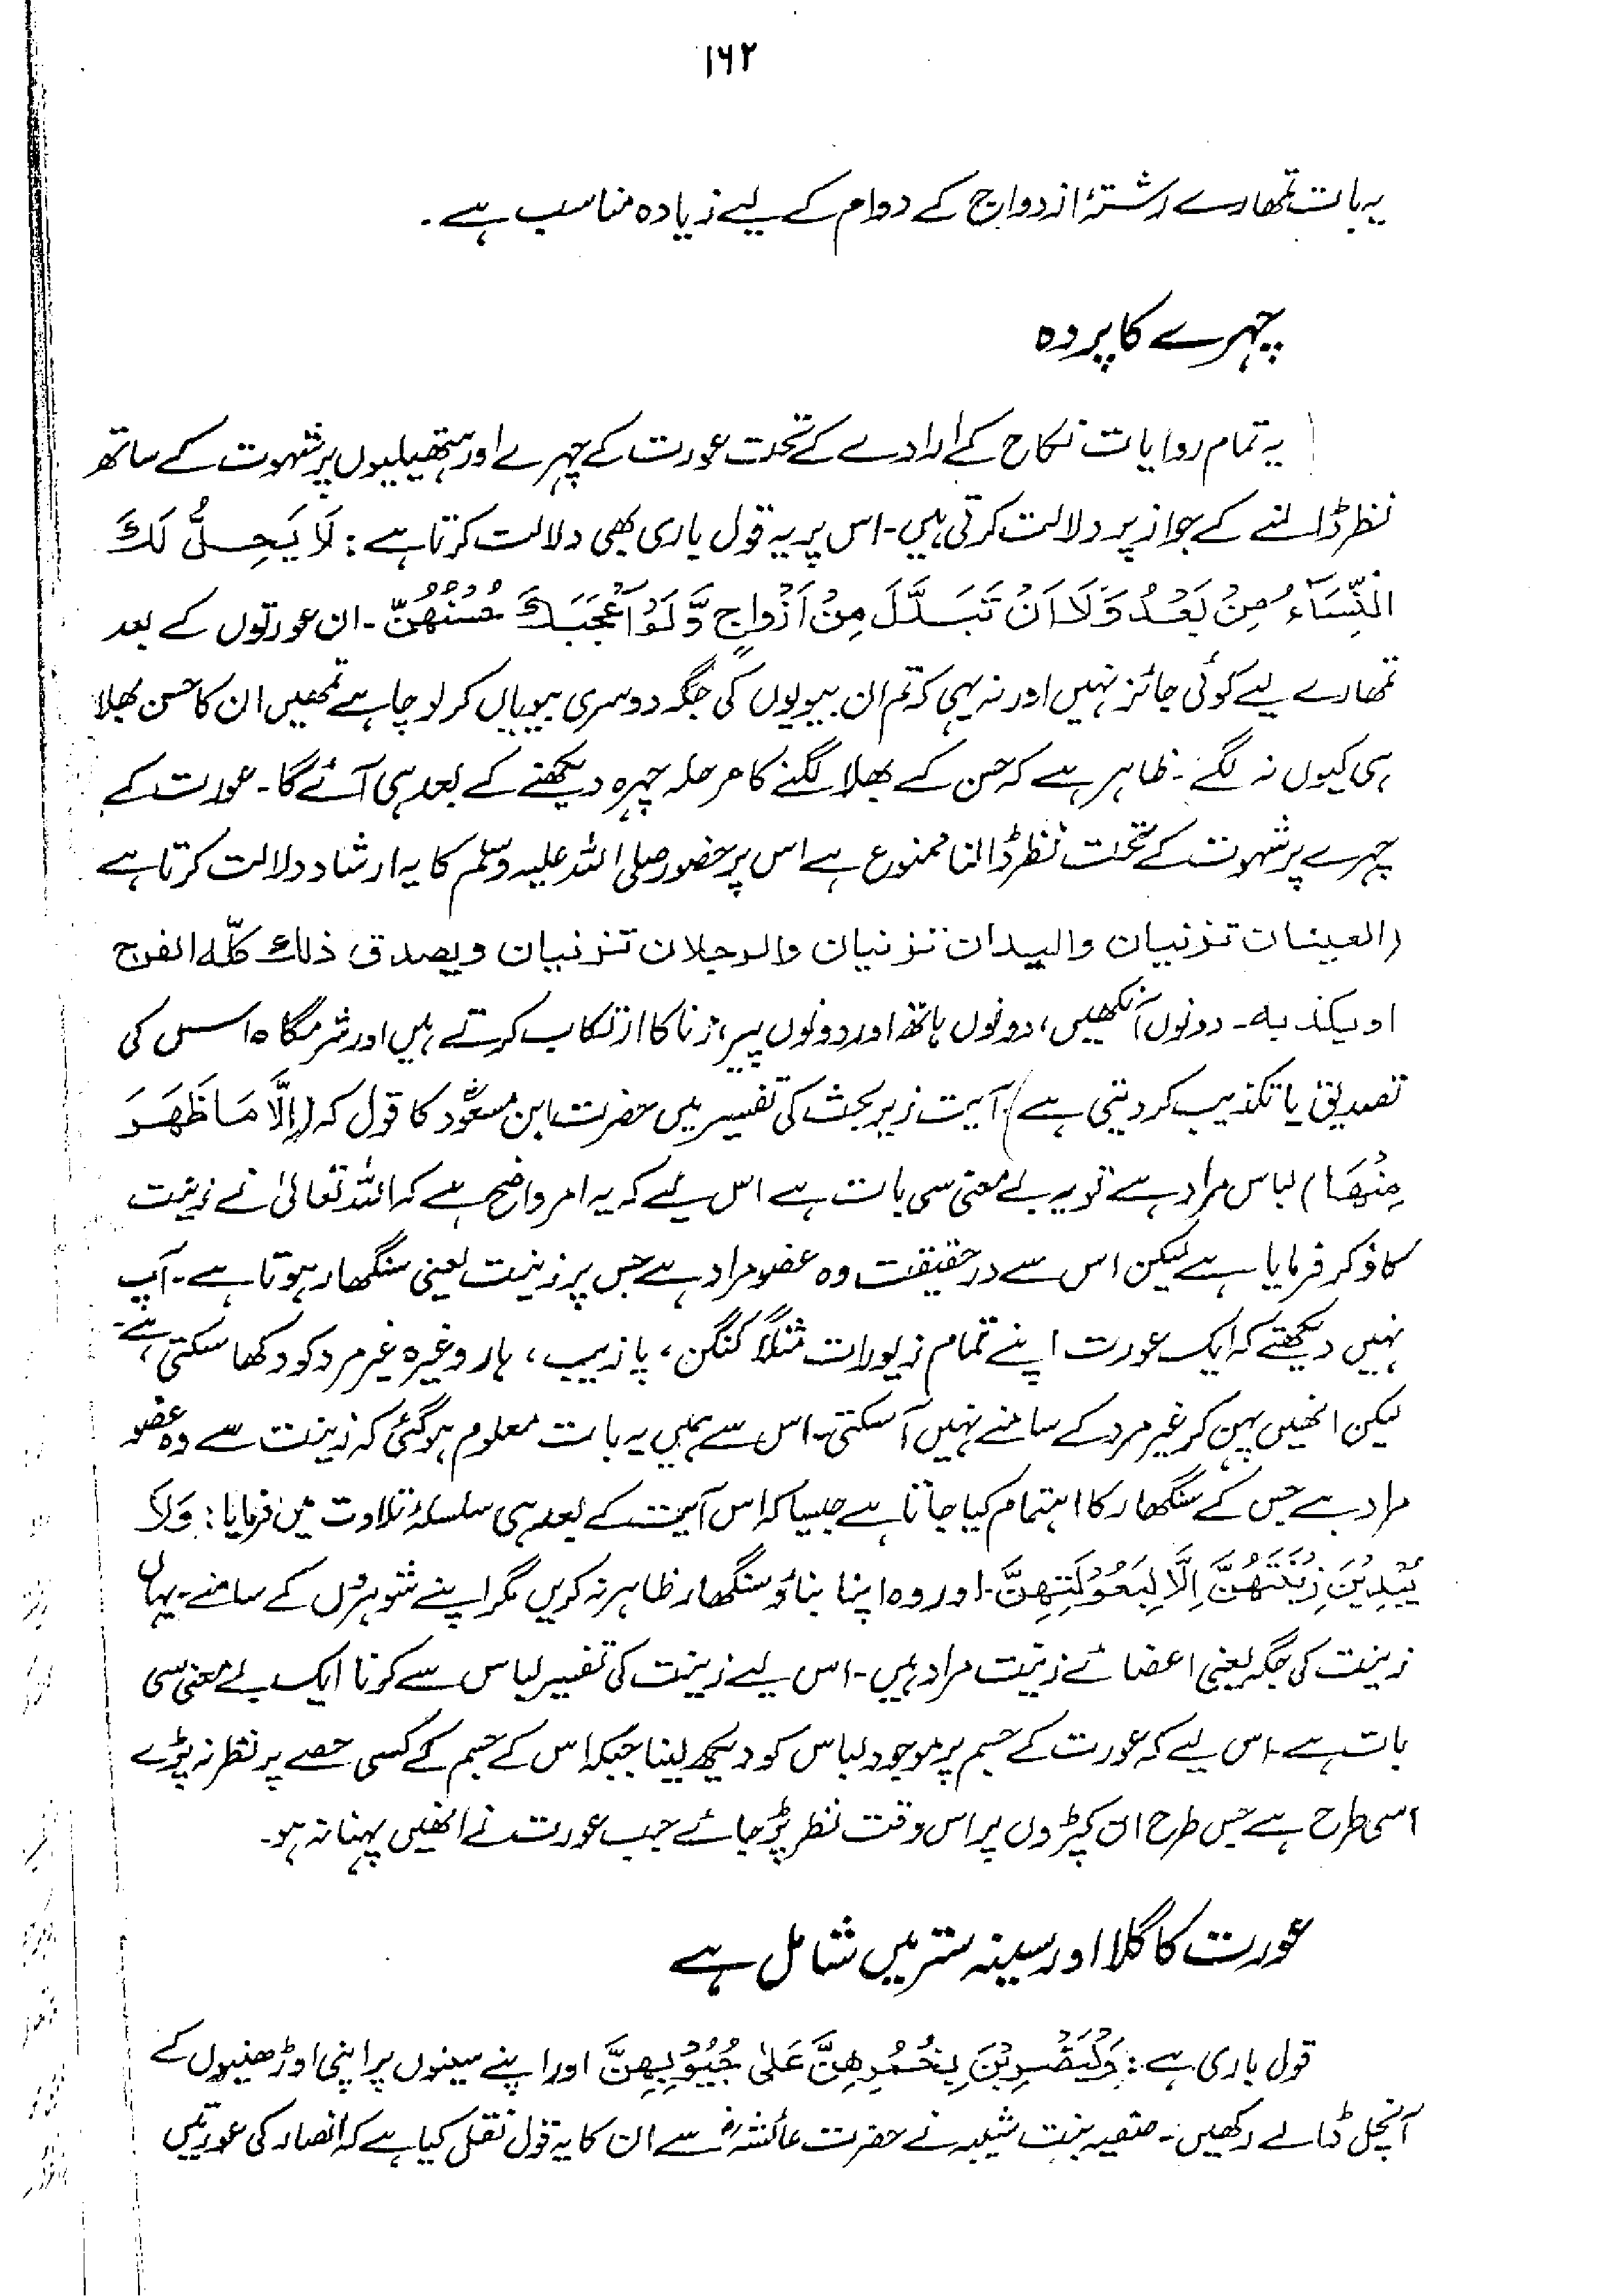 ۱۶۲
یہ بات تمھارے رشتۂ ازدواج کے دوام کے لیے زیادہ مناسب ہے۔
چہرے کا پردہ
یہ تمام روایات نکاح کے ارادے کے تحت عورت کے چہرے اور ہتھیلیوں پر شہوت کے ساتھ
نظر ڈالنے کے جواز پر دلالت کرتی ہیں۔ اس پر یہ قول باری بھی دلالت کرتا ہے: لَا يَحِلُّ لَكَ
النِّسَآءُ مِنْ بَعْدُ وَلَا اَنْ تَبَدَّلَ مِنْ اَزْوَاجٍ وَّلَوْ اَعْجَبَكَ حُسْنُهُنَّ۔ ان عورتوں کے بعد
تمھارے لیے کوئی جائز نہیں اور نہ یہی کہ تم ان بیویوں کی جگہ دوسری بیویاں کر لو چاہے تمھیں ان کا حسن بھلا
ہی کیوں نہ لگے۔ ظاہر ہے کہ حسن کے بھلا لگنے کا مرحلہ چہرہ دیکھنے کے بعد ہی آئے گا۔ عورت کے
چہرے پر شہوت کے تحت نظر ڈالنا ممنوع ہے اس پر حضور صلی اللہ علیہ وسلم کا یہ ارشاد دلالت کرتا ہے
(العینان تزنیان والیدان تزنیان والرجلان تزنیان ویصدق ذلك كلّه الفرج
او یکذبہ۔ دونوں آنکھیں، دونوں ہاتھ اور دونوں پیر، زنا کا ارتکاب کرتے ہیں اور شرمگاہ اس کی
تصدیق یا تکذیب کر دیتی ہے) آیت زیر بحث کی تفسیر میں حضرت ابن مسعودؓ کا قول کہ (اِلَّا مَا ظَهَرَ
مِنْهَا) لباس مراد ہے تو یہ بے معنی سی بات ہے اس لیے کہ یہ امر واضح ہے کہ اللہ تعالیٰ نے زینت
کا ذکر فرمایا ہے لیکن اس سے درحقیقت وہ عضو مراد ہے جس پر زینت یعنی سنگھار ہوتا ہے۔ آپ
نہیں دیکھتے کہ ایک عورت اپنے تمام زیورات مثلاً کنگن، پازیب، ہار وغیرہ غیر مرد کو دکھا سکتی ہے۔
لیکن انھیں پہن کر غیر مرد کے سامنے نہیں آ سکتی۔ اس سے ہمیں یہ بات معلوم ہو گئی کہ زینت سے وہ عضو
مراد ہے جس کے سنگھار کا اہتمام کیا جاتا ہے جیسا کہ اس آیت کے بعد ہی سلسلۂ تلاوت میں فرمایا: وَلَا
يُبْدِيْنَ زِيْنَتَهُنَّ اِلَّا لِبُعُوْلَتِهِنَّ۔ اور وہ اپنا بناؤ سنگھار ظاہر نہ کریں مگر اپنے شوہروں کے سامنے۔ یہاں
زینت کی جگہ یعنی اعضائے زینت مراد ہیں۔ اس لیے زینت کی تفسیر لباس سے کرنا ایک بے معنی سی
بات ہے۔ اس لیے کہ عورت کے جسم پر موجود لباس کو دیکھ لینا جبکہ اس کے جسم کے کسی حصے پر نظر نہ پڑے
اسی طرح ہے جس طرح ان کپڑوں پر اس وقت نظر پڑ جائے جب عورت نے انھیں پہنا نہ ہو۔
عورت کا گلا اور سینہ ستر میں شامل ہے
قول باری ہے: وَلْيَضْرِبْنَ بِخُمُرِهِنَّ عَلٰى جُيُوْبِهِنَّ اور اپنے سینوں پر اپنی اوڑھنیوں کے
آنچل ڈالے رکھیں۔ صفیہ بنت شیبہ نے حضرت عائشہؓ سے ان کا یہ قول نقل کیا ہے کہ انصار کی عورتیں